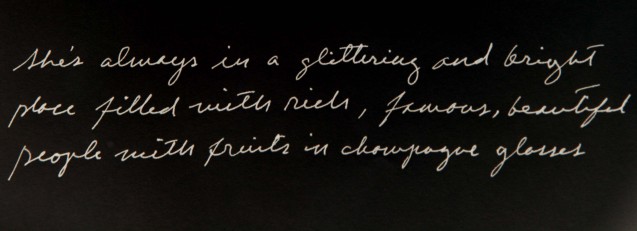 she's always in a glittering and bright
place filled with rich, famous, beautiful
people with fruits in champagne glasses